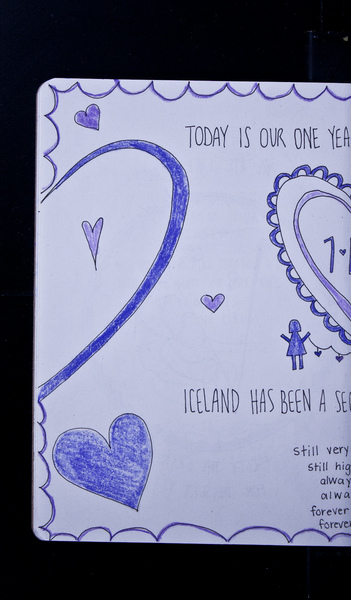 TODAY IS OUR ONE YEA
1
ICELAND HAS BEEN A SE
still very
still hig
alway
alwa
forever
foreve